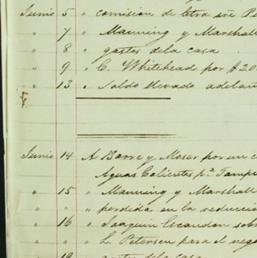 Junio 5 " comision de letra sre Pe
" 7 " Manning y Marshall
" 8 " gastos de la casa
" 9 " C. Whitehead por $20
" 13 " Saldo llevado adelan
Junio 14 A Barre y Moser por un c
Aguas Calientes pa. Tampi
" 15 " Manning y Marshall
" " " perdida en la reduccio
" 16 " Joaquin Escandon sob
" " " L. Petersen para el neg
" 19 " gastos de la casa